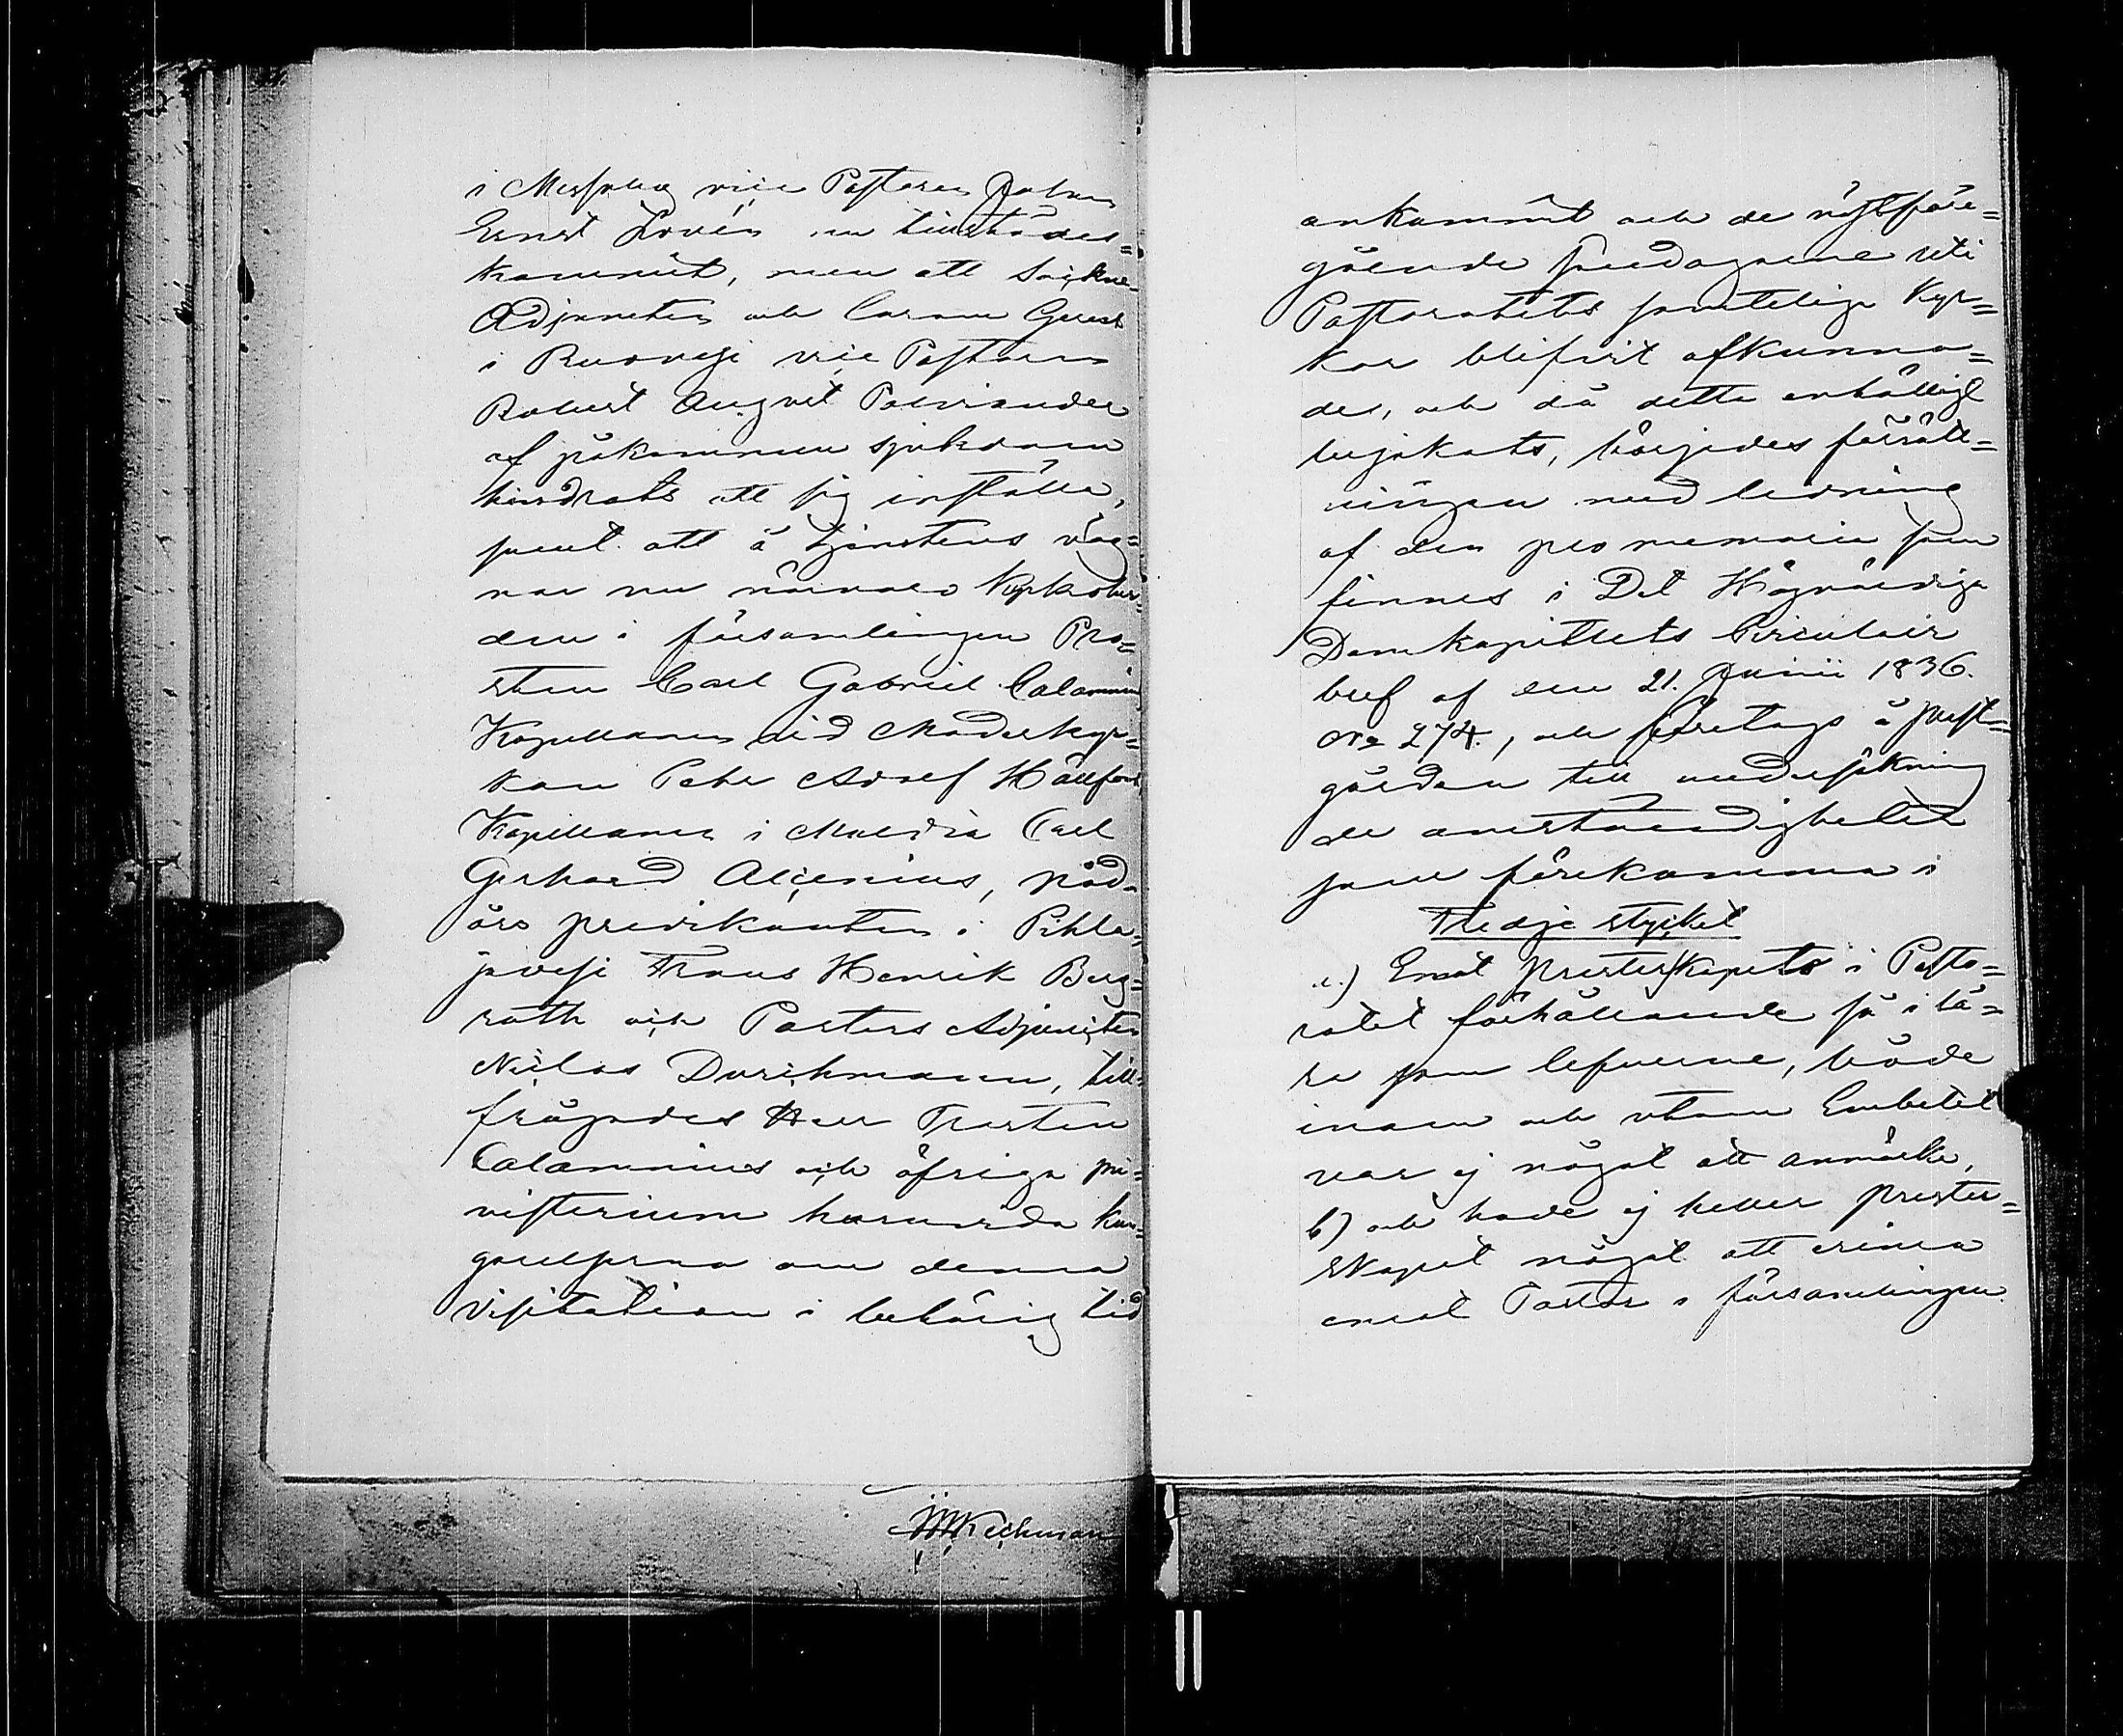 i Messuby vice Pastoren Johan
Ernst Lovén nu tillstädes=
kommit, men att Sockne
Adjuncten och Coram Gerens
i Ruovesi vice Pastoren
Robert August Polviander
af påkommen sjukdom
hindrats att sig inställa,
samt att å tjenstens väg=
nar nu närvaro Kyrkoher=
den i församlingen Pro=
sten Carl Gabriel Calamnius
Kapellanen vid Moderkyr=
kan Petr Adolf Hällfors
Kapellanen i Multia Carl
Gerhard Alcenius, Nöd=
års predikanten i Pihla=
javesi Frans Henrik Berg=
roth och Pastors Adjuncten
Niclas Durchmann, till=
frågades Herr Prosten
Calamnius och öfriga mi=
nisterium huruvida kun=
görelserna om denna
Visitation i behörig tid
JMKechman
ankommit och de nästföre=
gående söndagarne uti
Pastoratets samtelige Kyr=
kor blifvit afkunna=
de, och då detta enhälligt
bejakats, börjades förrätt=
ningen med ledning
af den promemoria som
finnes i Det Högvärdiga
Domkapitlets Circulair
bref af den 21. Junii 1836.
No 274., och företogs å prest=
gården till undersökning
de omständigheter
som förekomma i
Tredje stycket
a.) Emot Presterskapets i Pasto=
ratet förhållande så i lä=
re som lefverne, både
inom och utom Embetet
var ej något att anmärka,
b) och hade ej heller prester=
skapet något att erinra
emot Pastor i församlingen.